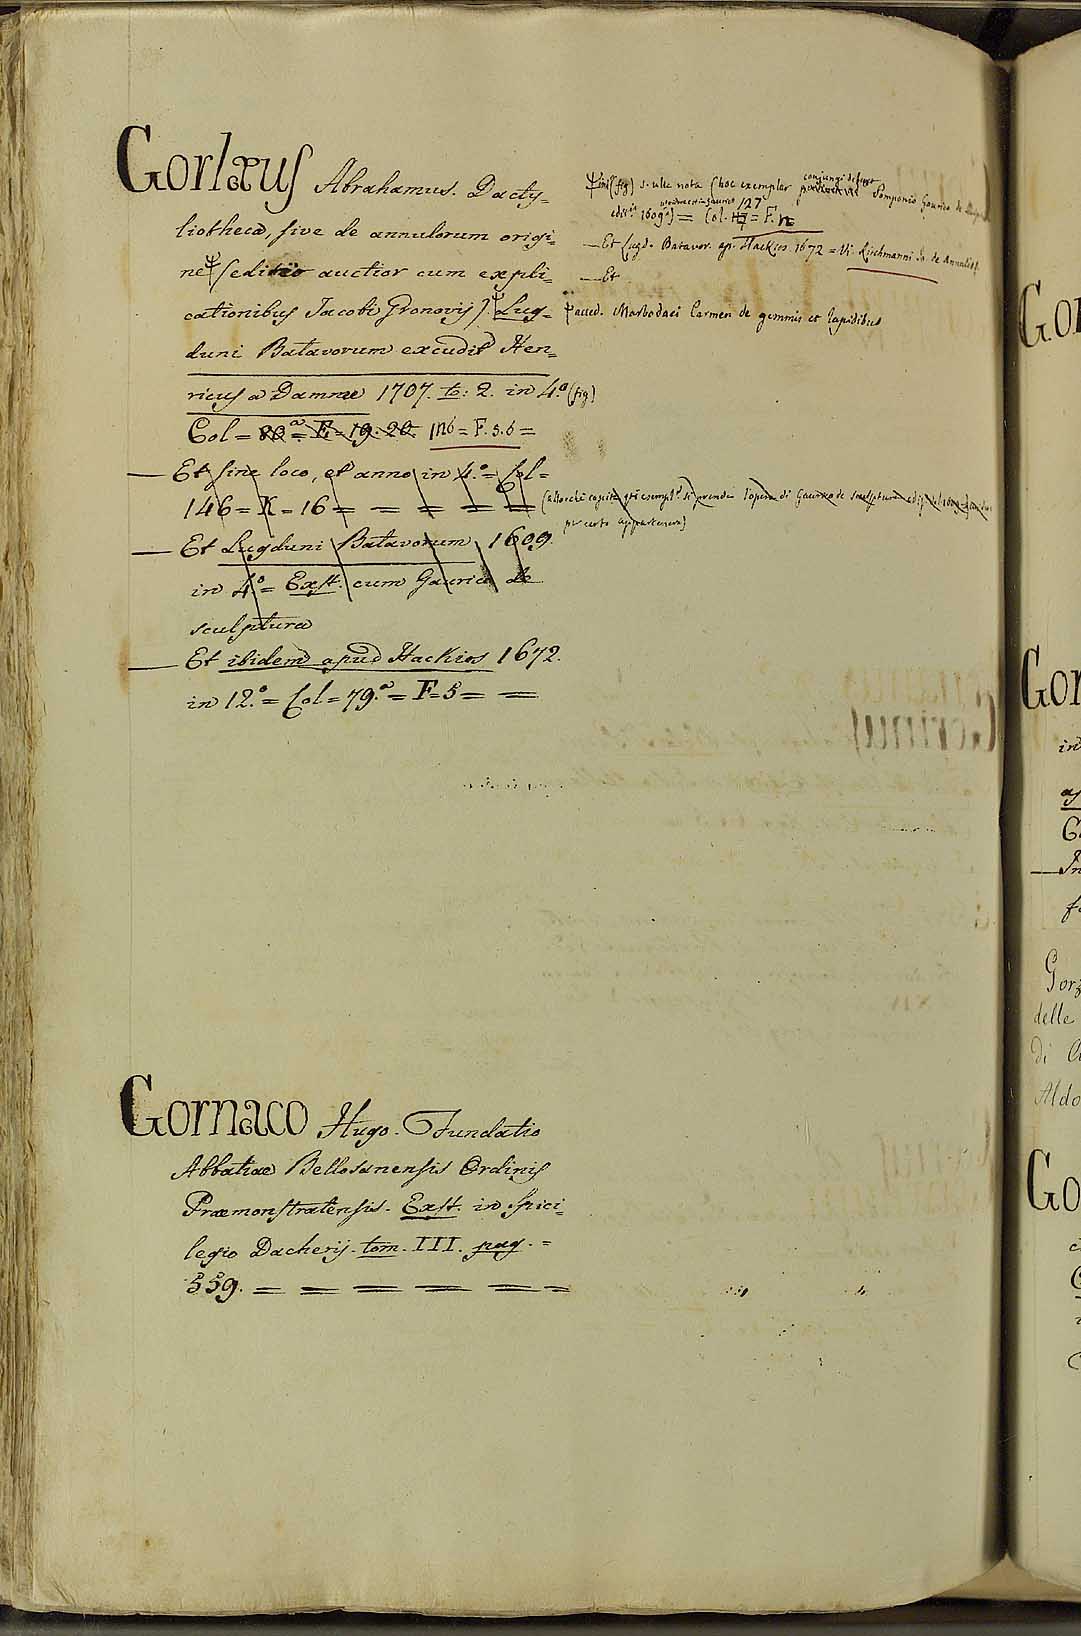 Gorlæus Abrahamus. Dacty=
liotheca, sive de annulorum origi=
ne (editio auctior cum expli=
cationibus Jacobi Gronovij). Lug=
duni Batavorum excudit Hen=
ricus a Damme 1707. to: 2. in 4.º (fig)
Col = 80ª = E = 19. 20. 116 = F. 5. 6 =
— Et sine loco, et anno in 4.º = Col =
146 = K = 16 = = = = =
— Et Lugduni Batavorum 1609.
in 4.º = Exst. cum Gaurico de
sculptura
— Et ibidem apud Hackios 1672.
in 12.º = Col = 79.ª = F = 5 = =
(fig) s. ulla nota (hoc exemplar conjungi Pomponio Gaurico de
edit. 1609) = Col. 127 = F.
— Et Lugd. Batavor. ap. Hackios 1672 = Vi. Kirchmanni Jo. de Annulis
— Et
acced. Marbodaei Carmen de gemmis et lapidibus
l'opera di Gaurico de sculptura
per certo
Gornaco Hugo. Fundatio
Abbatiae Bellosanensis Ordinis
Præmonstratensis. Exst. in Spici=
legio Dacherij. tom. III. pag. =
559. = = = = = =
Gor
Gor
in
Gorz
delle
di
Aldo
Go